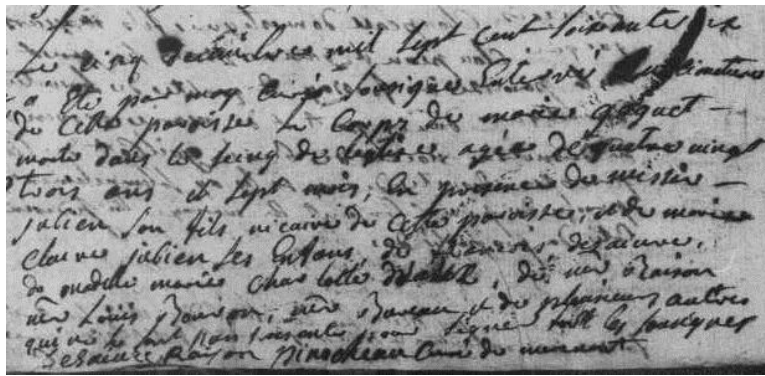 Le cinq decembre mil sept cent soixante six
a été par moy curé soussigné enterré cimetiere
de cette paroisse le corps de marie goguet
morte dans le seing de l'eglise agée de quatre vingt
trois ans et sept mois, en presence de messire
julien son fils vicaire de cette paroisse, et de marie
claire julien ses enfans, de
de madelle marie charlotte de mre Raison
mre Louis mre et de plusieurs autres
qui ne se sont pour signer les soussignés
Raison pinocheau curé de